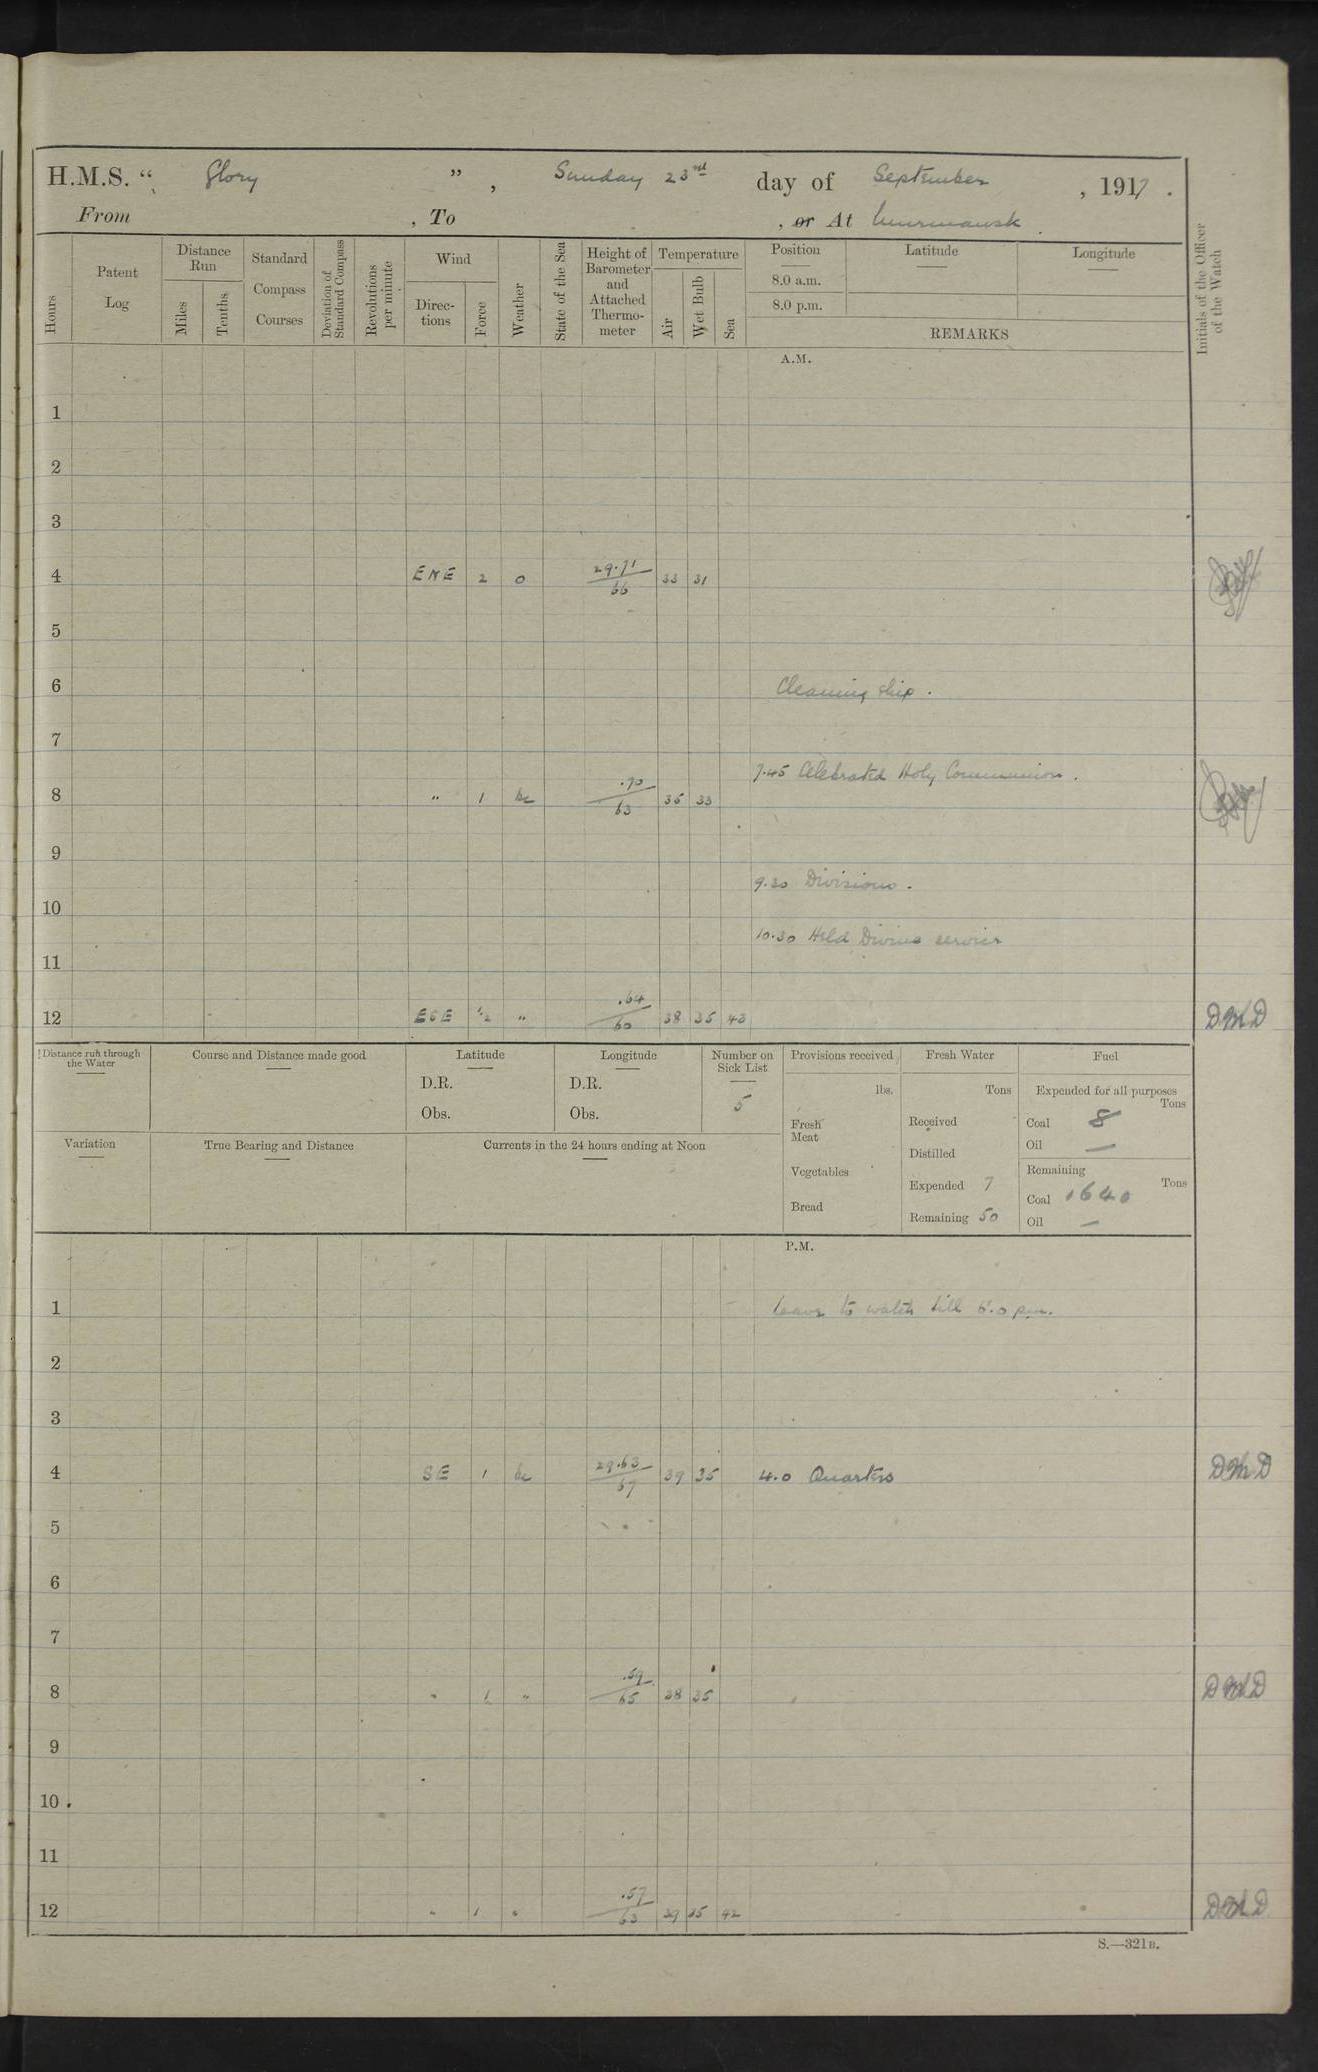 H.M.S. “ Glory ” , Sunday 23rd day of September , 1917 .
From , To , or At Murmansk .
Hours
Patent Log
Distance Run
Miles
Tenths
Standard Compass Courses
Deviation of Standard Compass
Revolutions per minute
Wind
Directions
Force
Weather
State of the Sea
Height of Barometer and Attached Thermometer
Temperature
Air
Wet Bulb
Sea
Position
Latitude
Longitude
8.0 a.m.
8.0 p.m.
REMARKS
Initials of the Officer of the Watch
A.M.
1
2
3
4 ENE 2 o 29.71 66 33 31
5
6 Cleaning ship .
7
7.45 Celebrated Holy Communion .
8 " 1 bc .70 63 35 33
9
9.30 Divisions .
10
10.30 Held Divine service
11
12 ESE 1/2 " .64 60 38 35 43 DMD
Distance run through the Water
Course and Distance made good
Latitude
D.R.
Obs.
Longitude
D.R.
Obs.
Number on Sick List
5
Provisions received
lbs.
Fresh Meat
Vegetables
Bread
Fresh Water
Tons
Received
Distilled
Expended 7
Remaining 50
Fuel
Expended for all purposes
Tons
Coal 8
Oil —
Remaining
Tons
Coal 1640
Oil —
Variation
True Bearing and Distance
Currents in the 24 hours ending at Noon
P.M.
1 Leave to watch till 6.0 pm.
2
3
4 SE 1 bc 29.63 67 39 35 4.0 Quarters DMD
5
6
7
8 " 1 " .59 65 38 35 DMD
9
10
11
12 " 1 " .57 63 39 35 42 DMD
S.—321B.